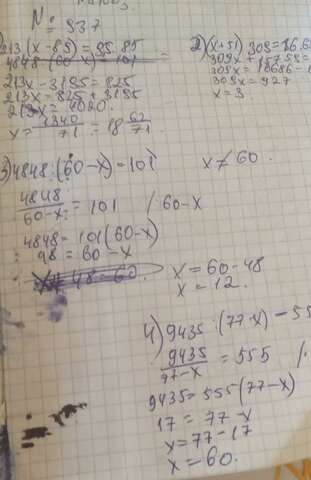 № 937
213(x-85)=85.85
4848 (60-x) = 101
213x-3195=825
213x=825+3195
x=1340/71=18 62/71
2)(x+51) 309=16.6
309x=927
x=3
3)4848:(60-x)=101 x≠60.
4848/60-x=101 /·60-x
4848=101(60-x)
48=60-x
x=60-48
x=12.
4) 9435:(77-x)=55
9435/77-x=555 /·
9435=555(77-x)
17=77-x
x=77-17
x=60.